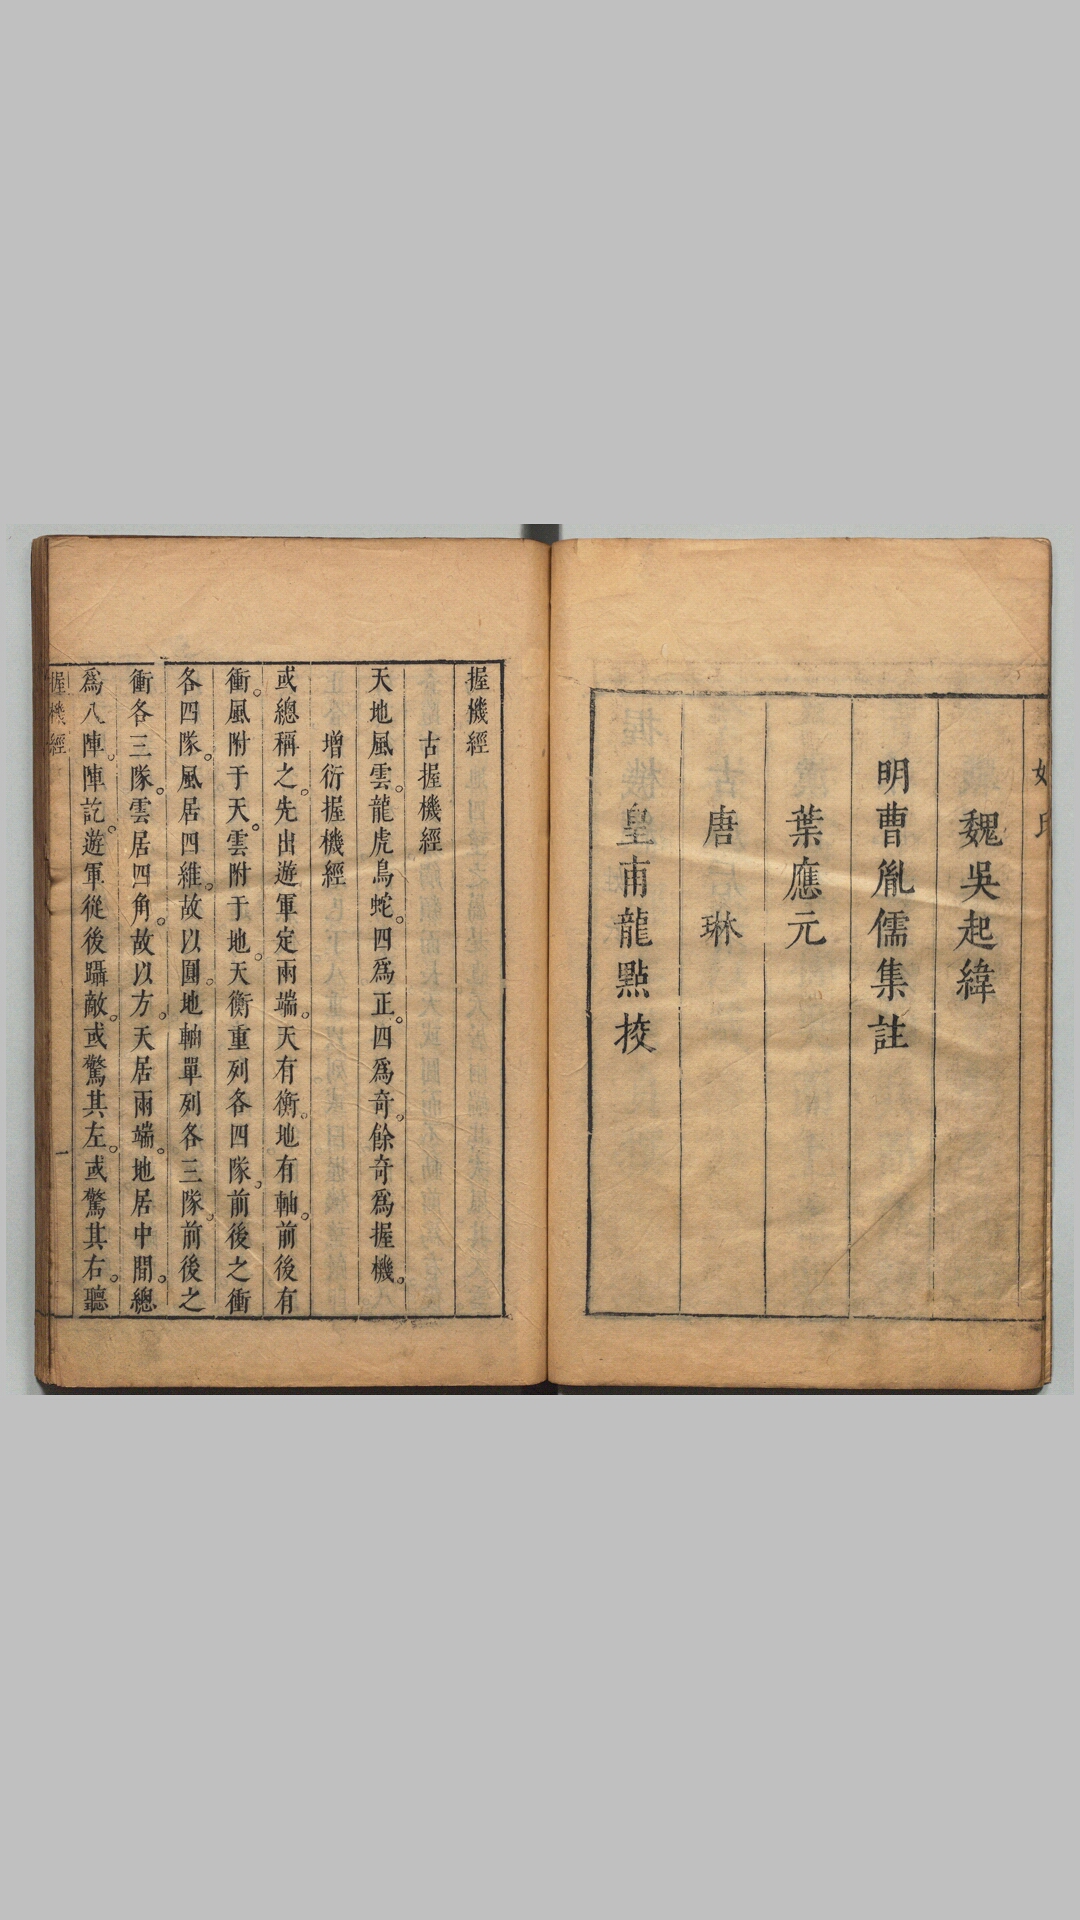 魏吳起緯
明曹胤儒集註
葉應元
唐琳
皇甫龍點挍
握機經
古握機經
天地風雲。龍虎鳥蛇。四爲正。四爲奇。餘奇爲握機。
增衍握機經
或總稱之。先出遊軍定兩端。天有衡。地有軸。前後有
衝。風附于天。雲附于地。天衡重列各四隊。前後之衝
各四隊。風居四維。故以圓。地軸單列各三隊。前後之
衝各三隊。雲居四角。故以方。天居兩端。地居中閒。總
爲八陣。陣訖。遊軍從後躡敵。或驚其左。或驚其右。聽
握機經
一